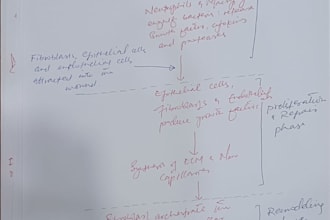 Neutrophils &
engulf bacteria
Growth factors, cytokines
and proteases
Fibroblasts, epithelial cells
and endothelial cells
attracted into the
wound.
Epithelial cells,
Fibroblasts & Endothelial
produce growth factors
proliferation
& Repair
phase
Synthesis of ECM & New
capillaries
Fibroblast
Remodeling